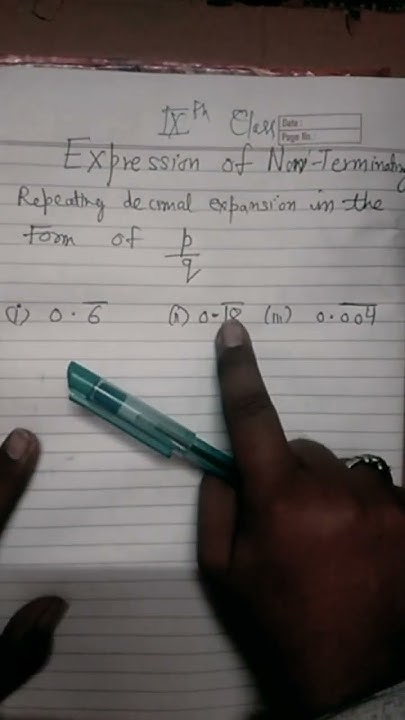 IXth Class
Date :
Page No.
Expression of Non-Terminating
Repeating decimal expansion in the
form of p/q
(i) 0.6̅ (ii) 0.1̅8̅ (iii) 0.0̅0̅4̅